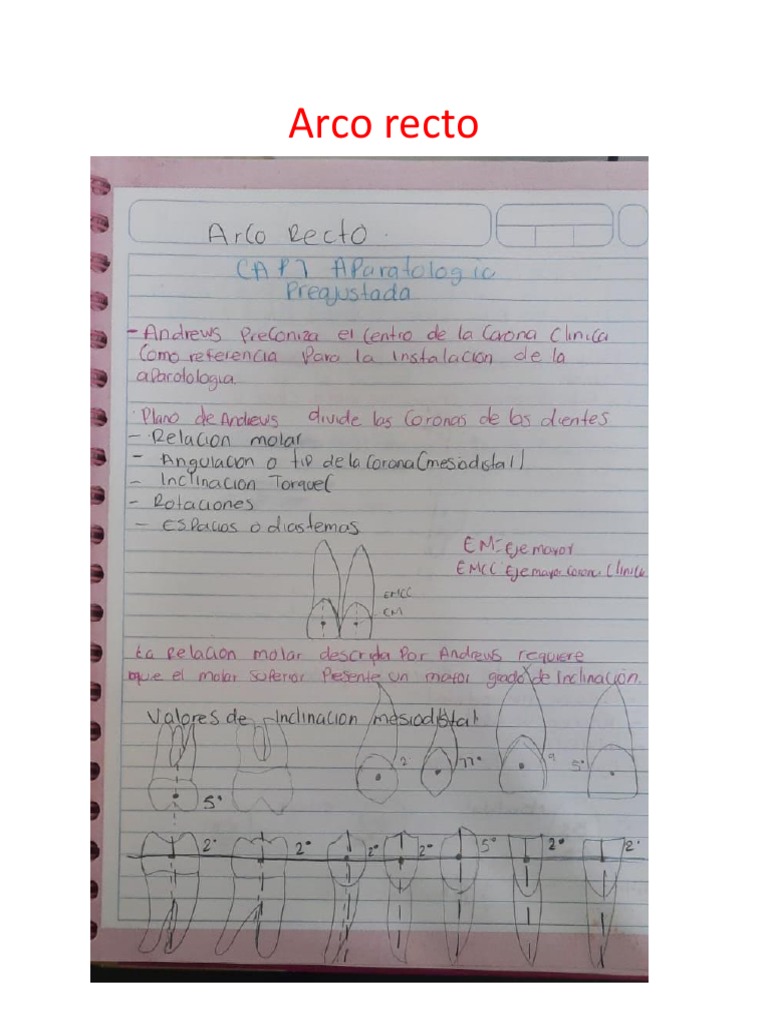 Arco recto
Arco Recto.
CAP 7 Aparatologia
Preajustada
- Andrews Preconiza el Centro de la Corona Clinica
Como referencia Para la instalacion de la
aparatologia
Plano de Andrews divide las Coronas de los dientes
- Relacion molar
- Angulacion o tip de la Corona (mesiodistal)
- Inclinacion Torque(
- Rotaciones
- Espacios o diastemas
EM=Eje mayor
EMCC: Eje mayor Corona Clinica
EMCC
EM
La Relacion molar descrita Por Andrews requiere
que el molar superior Presente un mayor grado de Inclinación.
Valores de Inclinacion mesiodistal
2° 11° 9 5°
5°
2° 2° 2° 2° 5° 2° 2°